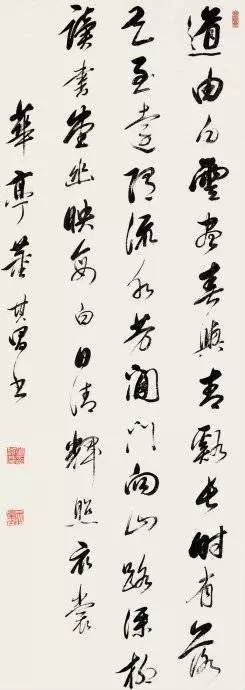 道由白雲盡春與青谿長時有落
花至遠隨流水芳閒門向山路深柳
讀書堂幽映每白日清輝照衣裳
華亭董其昌書